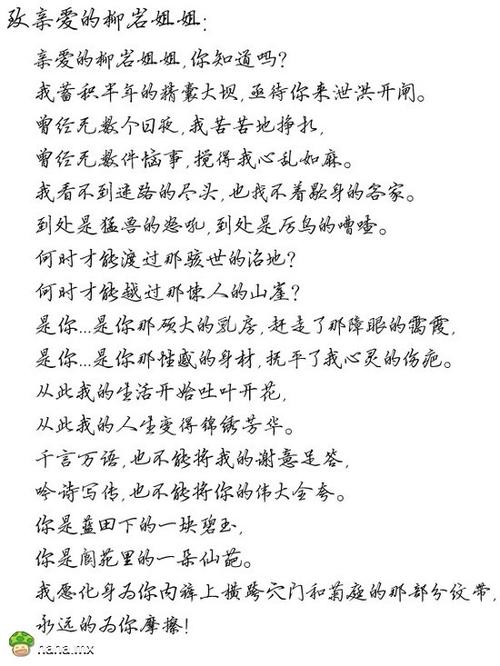 致亲爱的柳岩姐姐:
亲爱的柳岩姐姐,你知道吗?
我蓄积半年的精囊大坝,亟待你来泄洪开闸。
曾经无数个日夜,我苦苦地挣扎,
曾经无数件恼事,搅得我心乱如麻。
我看不到迷路的尽头,也找不着歇身的客家。
到处是猛兽的怒吼,到处是厉鸟的嘈喳。
何时才能渡过那骇世的沼地?
何时才能越过那悚人的山崖?
是你...是你那硕大的乳房,赶走了那障眼的雾霞,
是你...是你那性感的身材,抚平了我心灵的伤疤。
从此我的生活开始吐叶开花,
从此我的人生变得锦绣芳华。
千言万语,也不能将我的谢意足答,
吟诗写传,也不能将你的伟大全夸。
你是蓝田下的一块碧玉,
你是阆苑里的一朵仙葩。
我愿化身为你内裤上横跨穴门和菊庭的那部分纹带,
永远的为你摩擦!
nana.mx